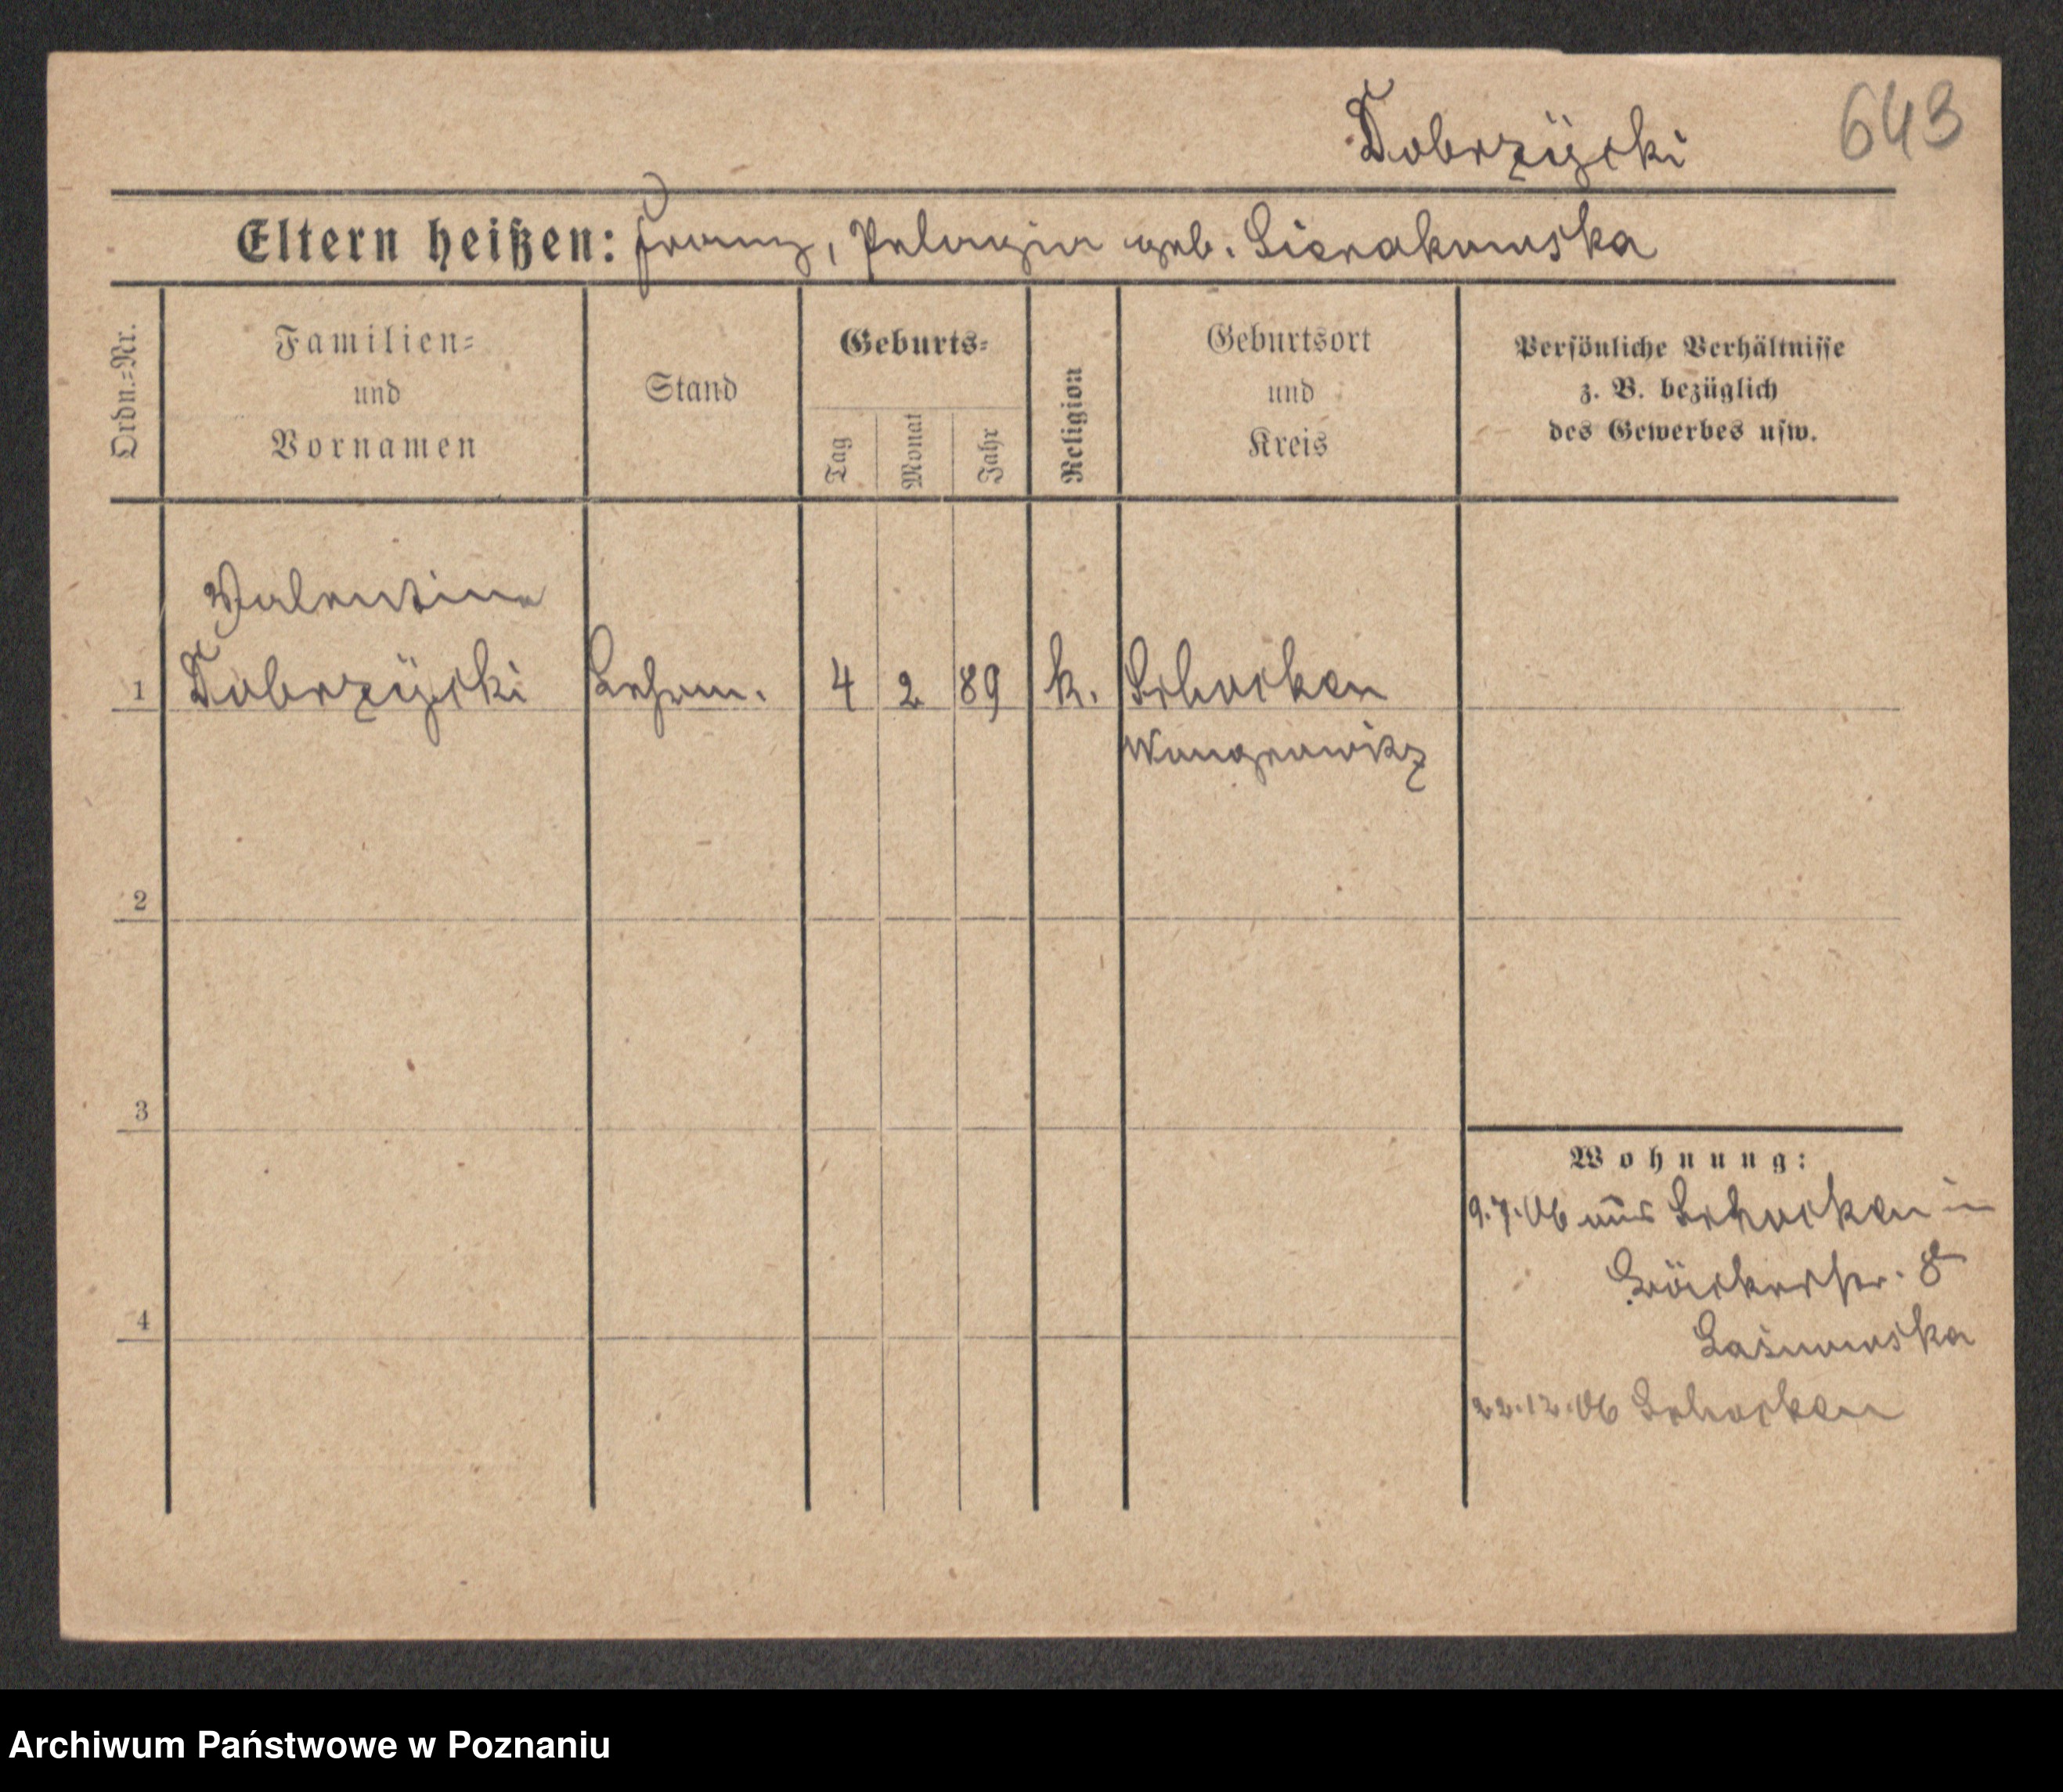 Dobrzycki 643
Eltern heißen: Franz, Pelagia geb. Sierakowska
Ordn.=Nr.
Familien=
und
Vornamen
Stand
Geburts=
Tag
Monat
Jahr
Religion
Geburtsort
und
Kreis
Persönliche Verhältnisse
z. B. bezüglich
des Gewerbes usw.
Valentina
1 Dobrzycki 4 2 89 k. Schocken
Wongrowitz
2
3
Wohnung:
9.7.06 aus Schocken in
Bäckerstr. 8
4
22.12.06 Schocken
Archiwum Państwowe w Poznaniu